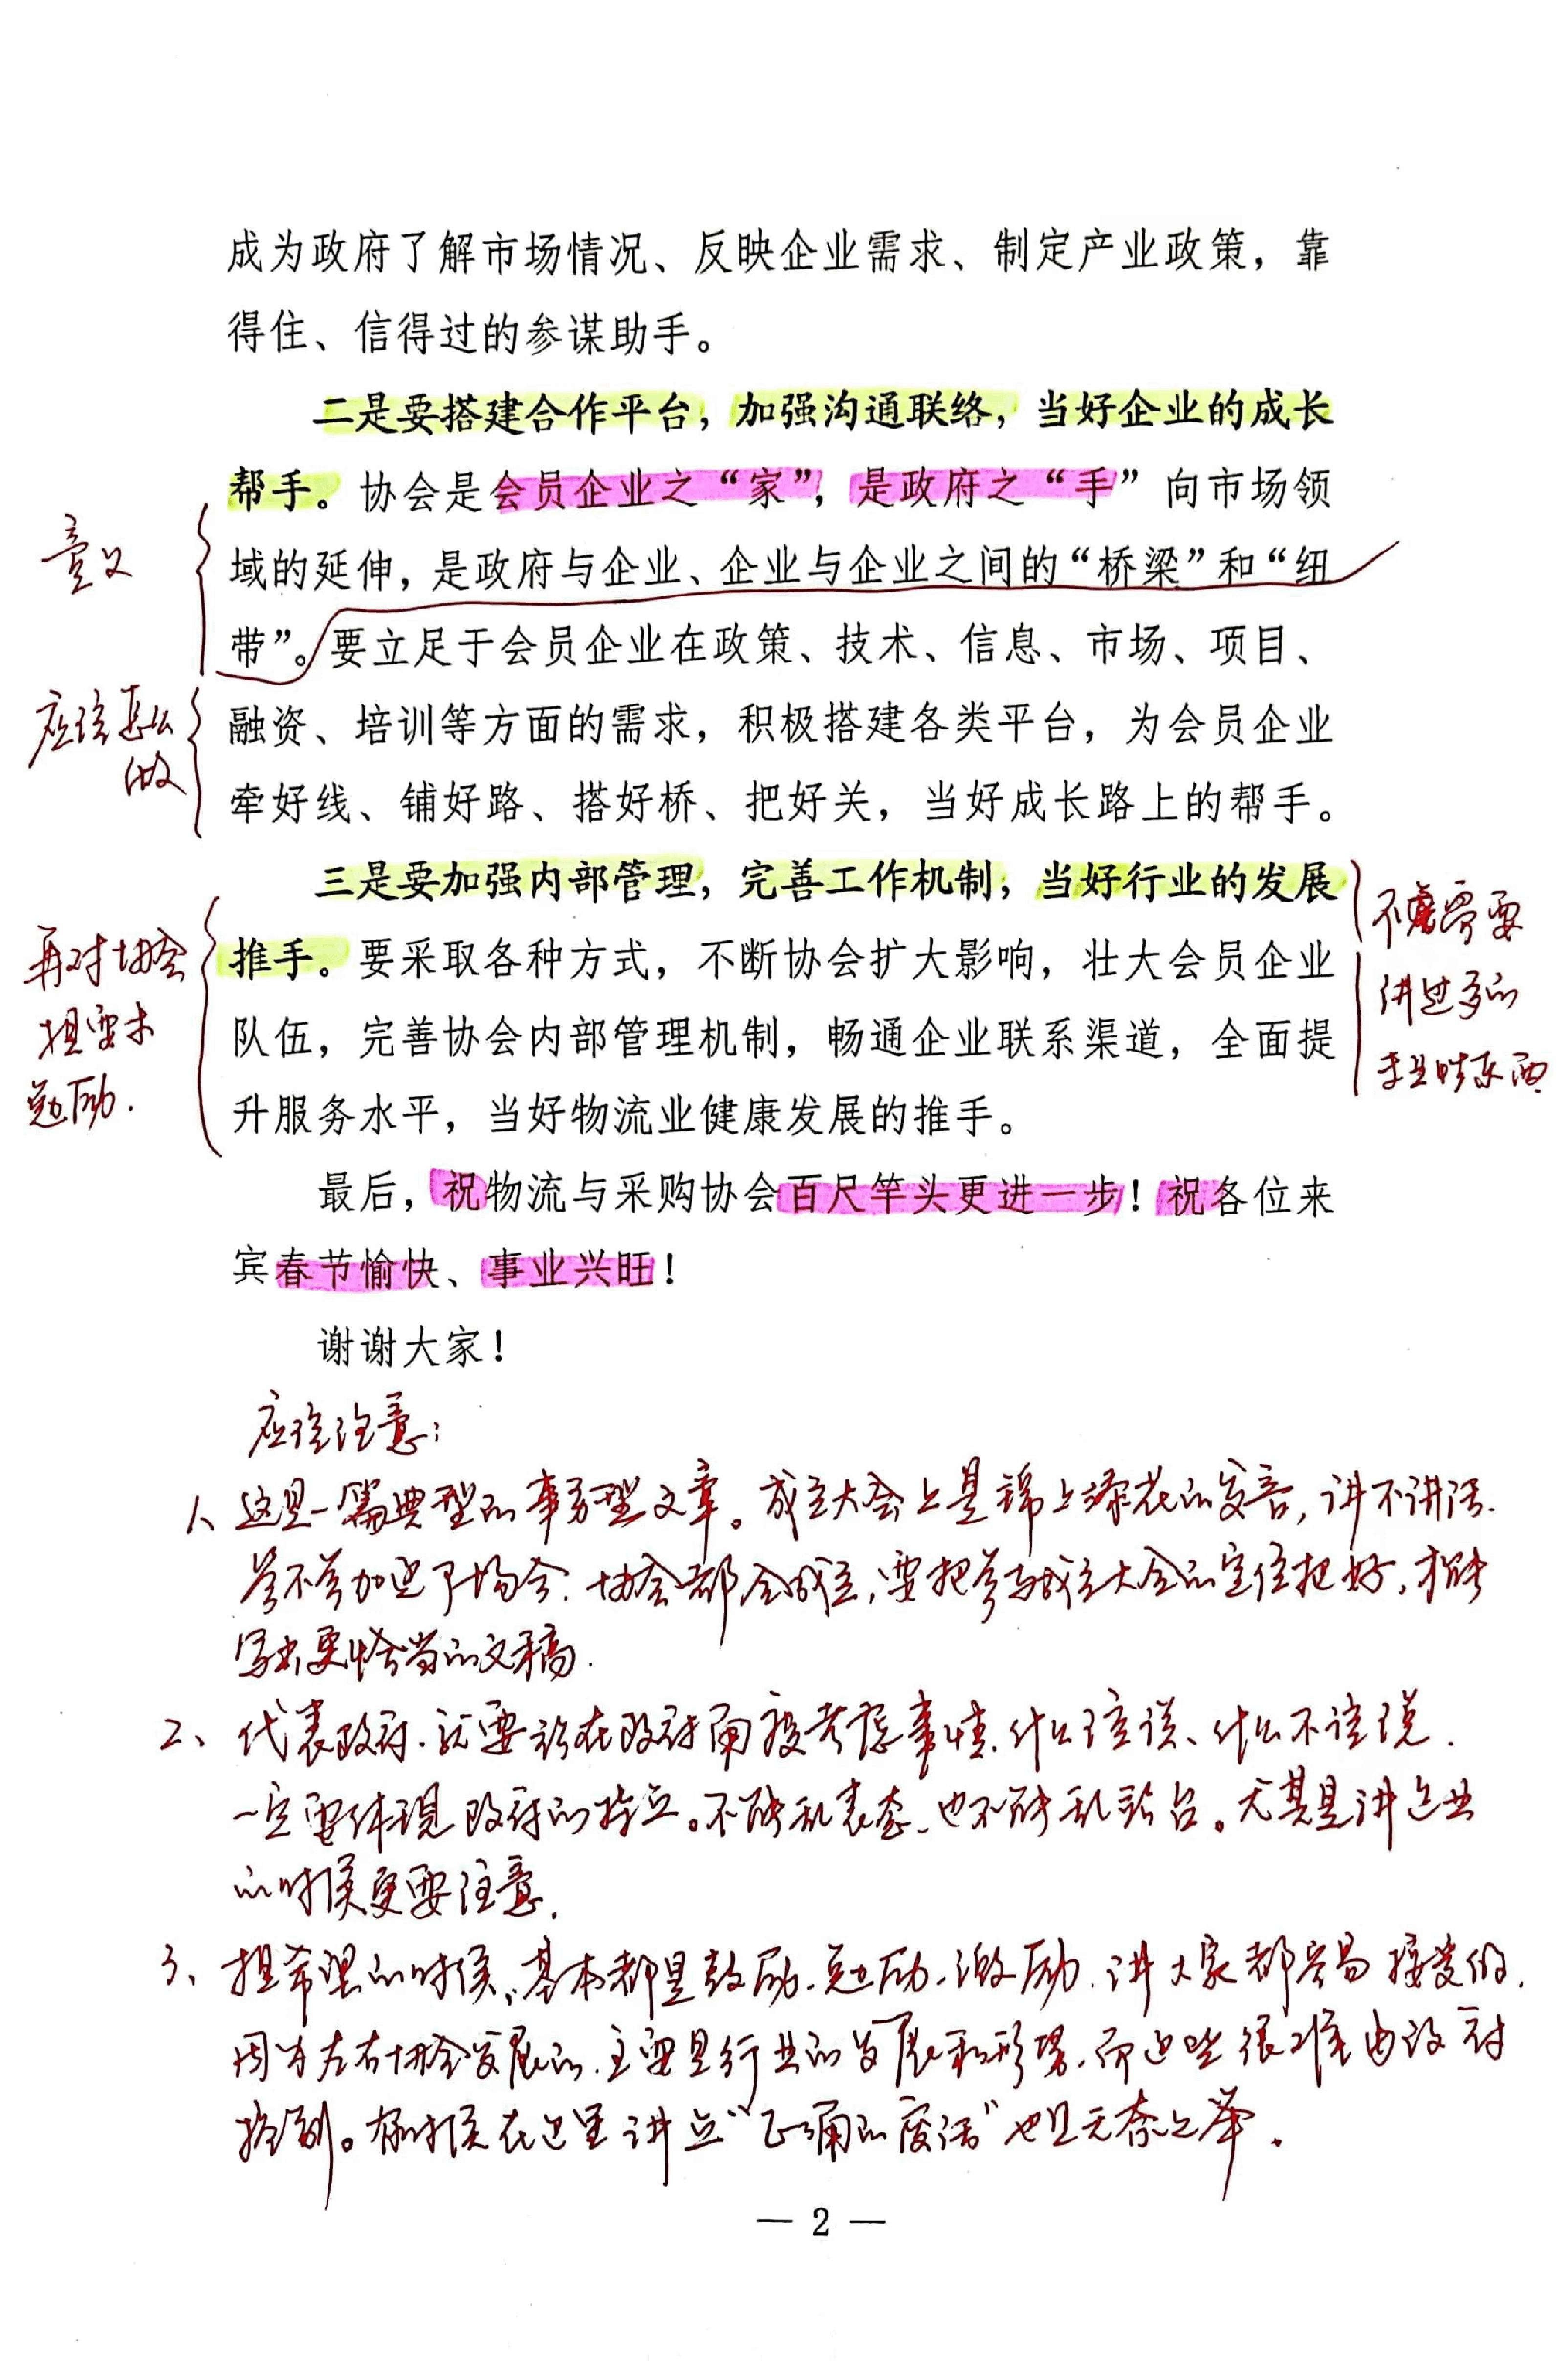 成为政府了解市场情况、反映企业需求、制定产业政策，靠
得住、信得过的参谋助手。
二是要搭建合作平台，加强沟通联络，当好企业的成长
帮手。协会是会员企业之“家”，是政府之“手”向市场领
域的延伸，是政府与企业、企业与企业之间的“桥梁”和“纽
带”。要立足于会员企业在政策、技术、信息、市场、项目、
融资、培训等方面的需求，积极搭建各类平台，为会员企业
牵好线、铺好路、搭好桥、把好关，当好成长路上的帮手。
三是要加强内部管理，完善工作机制，当好行业的发展
推手。要采取各种方式，不断协会扩大影响，壮大会员企业
队伍，完善协会内部管理机制，畅通企业联系渠道，全面提
升服务水平，当好物流业健康发展的推手。
最后，祝物流与采购协会百尺竿头更进一步！祝各位来
宾春节愉快、事业兴旺！
谢谢大家！
意义
应该怎么
做
再对协会
提要求
勉励.
不需要
讲过多的
东西
应该注意：
1、这是一篇典型的事务型文章。成立大会上是锦上添花的发言，讲不讲话.
参不参加这个场合.协会都会成立，要把参与成立大会的定位把好，才能
写出更恰当的文稿.
2、代表政府.就要站在政府角度考虑事情.什么该说、什么不该说.
一定要体现政府的特点。不能乱表态、也不能乱站台。尤其是讲企业
的时候更要注意.
3、提希望的时候，基本都是鼓励、勉励、激励.讲大家都容易接受的.
因为左右协会发展的.主要是行业的发展和形势.而这些很难由政府
控制。有时候在这里讲点“正确的废话”也是无奈之举.
— 2 —